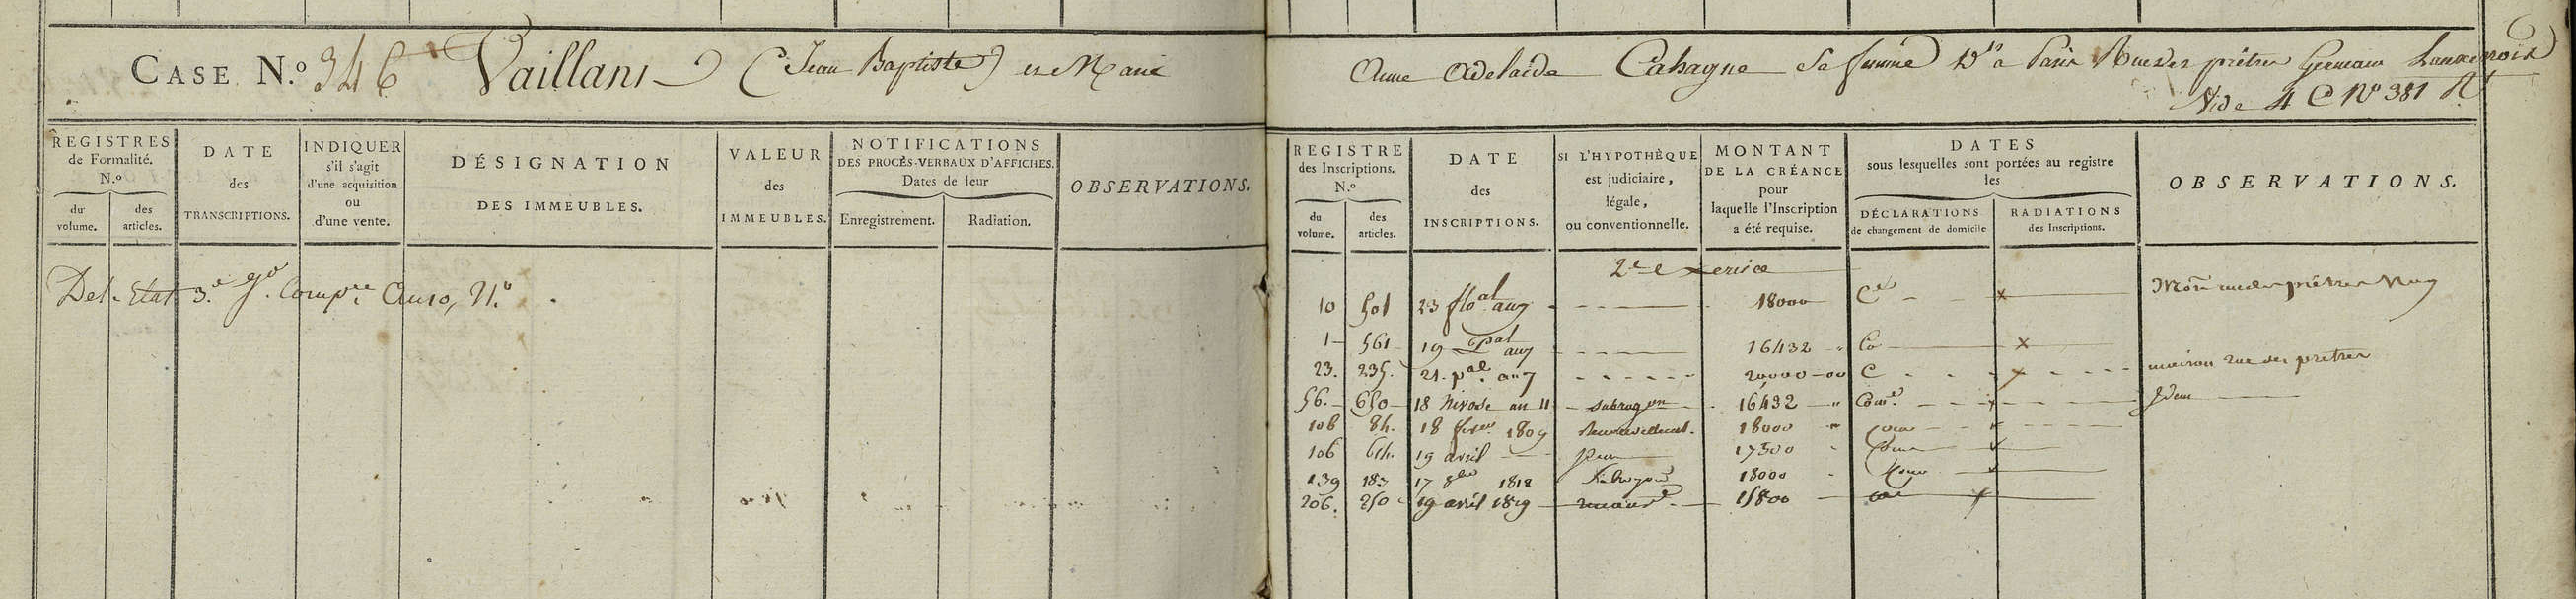 CASE N.º 346 Vaillant (Jean Baptiste) et Marie Anne Adelaïde Cahagne sa femme Dt à Paris Rue des prêtres Germain Lauxerrois
Vide 4 C Nº 381
REGISTRES de Formalité. N.º
du volume.
des articles.
DATE des TRANSCRIPTIONS.
INDIQUER s'il s'agit d'une acquisition ou d'une vente.
DÉSIGNATION DES IMMEUBLES.
VALEUR des IMMEUBLES.
NOTIFICATIONS DES PROCÈS-VERBAUX D'AFFICHES. Dates de leur
Enregistrement.
Radiation.
OBSERVATIONS.
Del. Etat 3.e
REGISTRE des Inscriptions. N.º
du volume.
des articles.
DATE des INSCRIPTIONS.
SI L'HYPOTHÈQUE est judiciaire, légale, ou conventionnelle.
MONTANT DE LA CRÉANCE pour laquelle l'Inscription a été requise.
DATES sous lesquelles sont portées au registre les
DÉCLARATIONS de changement de domicile
RADIATIONS des Inscriptions.
OBSERVATIONS.
10 501 23 floal an 7 18000 x
1 561 19 an 7 16432 Co x
23. 235. 21. pal an 7 20000-00 C x maison rue des pretres
56. 650 18 Nivose an 11 subrogon 16432 x Idem
108 84. 18 1809 Renouvellement. 18000
106 64. 19 avril Idem 17500
139 183 17 8bre 1812 18000
206. 250 19 avril 1819 15800